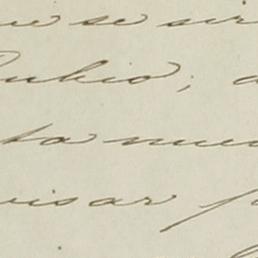 ue se sir
Rubio; a
ta mue
visar p